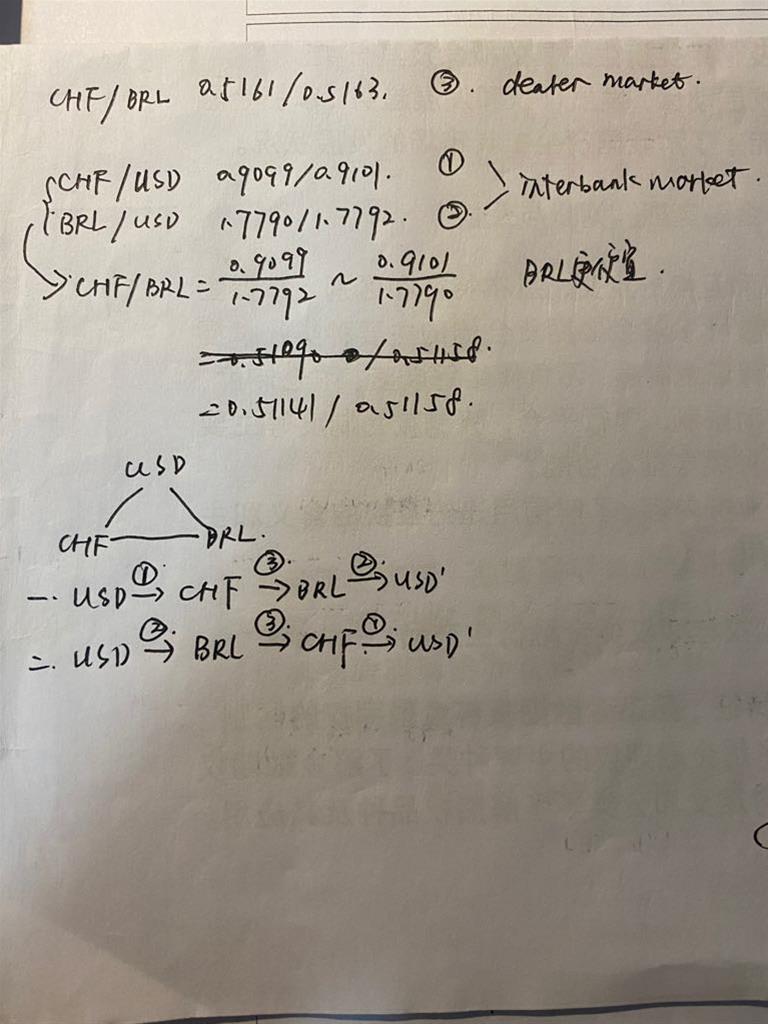 CHF/BRL 0.5161/0.5163. ③. dealer market.
CHF/USD 0.9099/0.9101. ①
interbank market.
BRL/USD 1.7790/1.7792. ②
CHF/BRL = 0.9099/1.7792 ~ 0.9101/1.7790 BRL更便宜.
=0.51141/0.51158.
USD
CHF BRL.
一. USD ①→ CHF ③→ BRL ②→ USD'
二. USD ②→ BRL ③→ CHF ①→ USD'